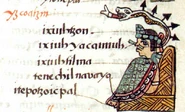 yzcoatzin
ixiuhtzon
ixiuhyacamiuh
ixiuhtilma
tenechilnavayo
tepotzoicpal